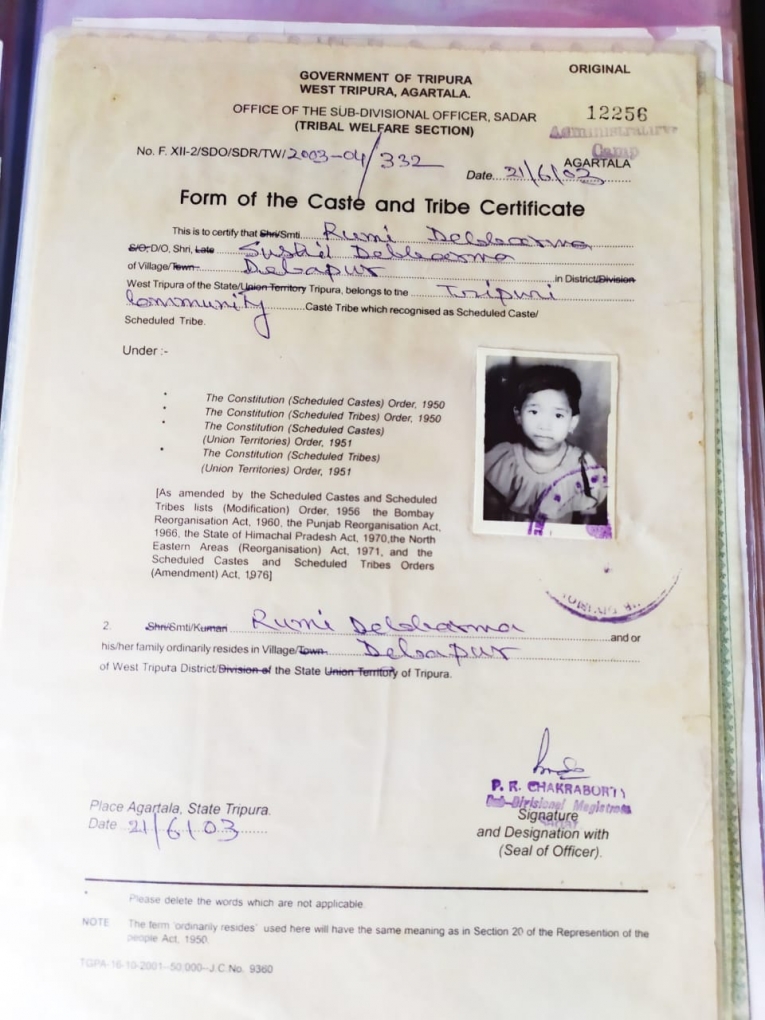 ORIGINAL
GOVERNMENT OF TRIPURA
WEST TRIPURA, AGARTALA.
OFFICE OF THE SUB-DIVISIONAL OFFICER, SADAR
(TRIBAL WELFARE SECTION)
12256
Administrative
Camp
No. F. XII-2/SDO/SDR/TW/2003-04/332
AGARTALA
Date...21/6/03
Form of the Caste and Tribe Certificate
This is to certify that Shri/Smti....Rumi Debbarma
S/O, D/O, Shri, Late Sushil Debbarma
of Village/Town Debapur in District/Division
West Tripura of the State/Union Territory Tripura, belongs to the Tripuri
Community Caste Tribe which recognised as Scheduled Caste/
Scheduled Tribe.
Under :-
* The Constitution (Scheduled Castes) Order, 1950
* The Constitution (Scheduled Tribes) Order, 1950
* The Constitution (Scheduled Castes)
(Union Territories) Order, 1951
* The Constitution (Scheduled Tribes)
(Union Territories) Order, 1951
[As amended by the Scheduled Castes and Scheduled
Tribes lists (Modification) Order, 1956 the Bombay
Reorganisation Act, 1960, the Punjab Reorganisation Act,
1966, the State of Himachal Pradesh Act, 1970,the North
Eastern Areas (Reorganisation) Act, 1971, and the
Scheduled Castes and Scheduled Tribes Orders
(Amendment) Act, 1976]
2. Shri/Smti/Kumari Rumi Debbarma and or
his/her family ordinarily resides in Village/Town Debapur
of West Tripura District/Division of the State Union Territory of Tripura.
P. R. CHAKRABORTY
Sub-Divisional Magistrate
Place Agartala, State Tripura.
Date 21/6/03
Signature
and Designation with
(Seal of Officer).
* Please delete the words which are not applicable.
NOTE The term 'ordinarily resides' used here will have the same meaning as in Section 20 of the Represention of the
people Act, 1950.
TGPA-16-10-2001--50,000--J.C.No. 9360